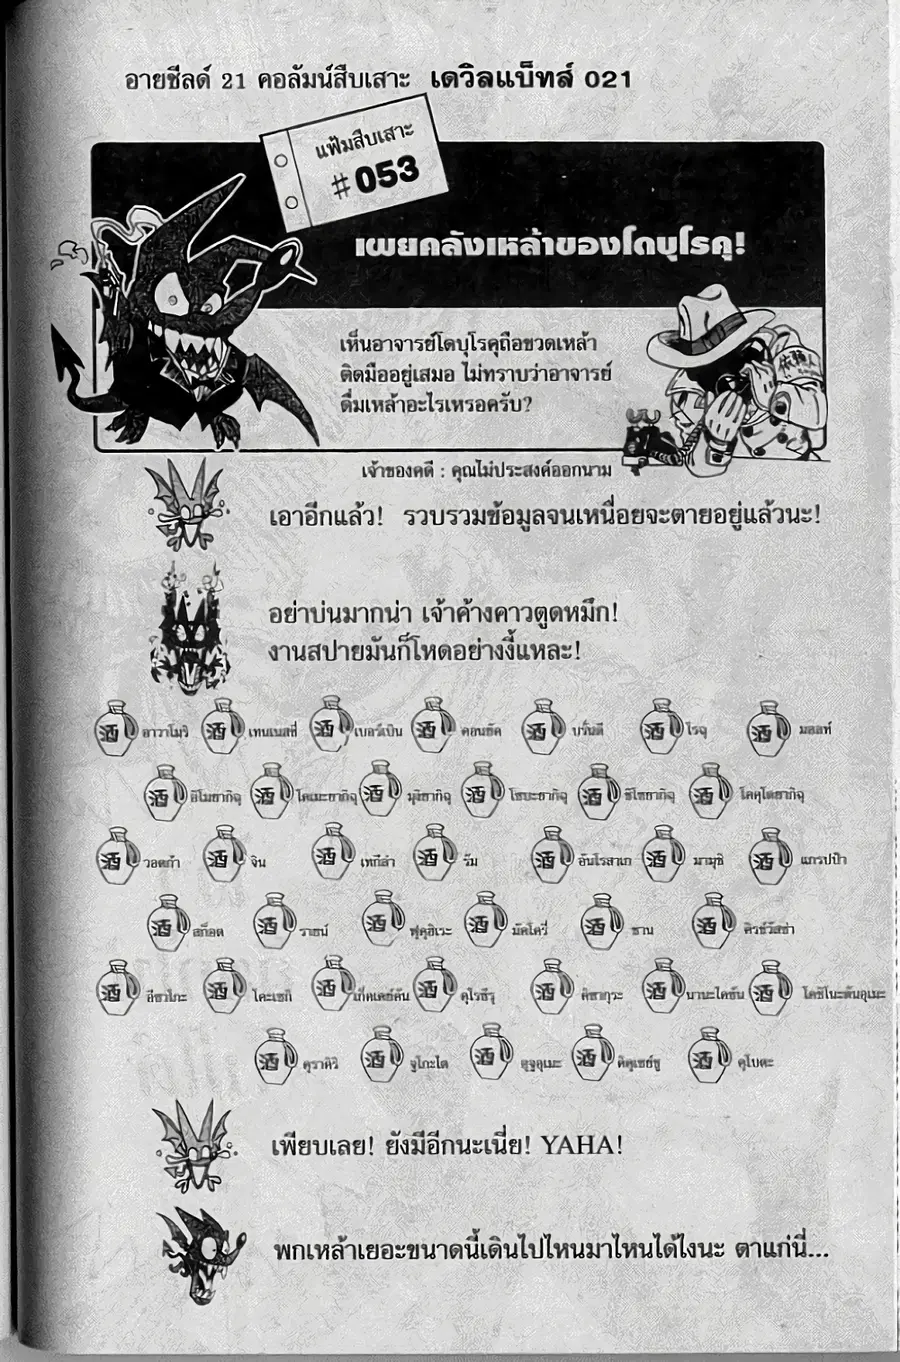 อายชีลด์ 21 คอลัมน์สืบเสาะ เดวิลแบ็ทส์ 021
แฟ้มสืบเสาะ
#053
เผยคลังเหล้าของโดบุโรคุ!
เห็นอาจารย์โดบุโรคุถือขวดเหล้า
ติดมืออยู่เสมอ ไม่ทราบว่าอาจารย์
ดื่มเหล้าอะไรเหรอครับ?
เจ้าของคดี : คุณไม่ประสงค์ออกนาม
เอาอีกแล้ว! รวบรวมข้อมูลจนเหนื่อยจะตายอยู่แล้วนะ!
อย่าบ่นมากน่า เจ้าค้างคาวตูดหมึก!
งานสปายมันก็โหดอย่างงี้แหละ!
酒 อาวาโมริ 酒 เทนเนสซี่ 酒 เบอร์เบิน 酒 คอนยัค 酒 บรั่นดี 酒 โรจุ 酒 มอลท์
酒 อิโมยากิจุ 酒 โคเมะยากิจุ 酒 มุงิยากิจุ 酒 โซบะยากิจุ 酒 ชิโซยากิจุ 酒 โคคุโตยากิจุ
酒 วอดก้า 酒 จิน 酒 เทกีล่า 酒 รัม 酒 อันโรสาเก 酒 มามุชิ 酒 แกรปป้า
酒 สก็อต 酒 ไรย์ 酒 ฟุคุฮิเระ 酒 มัคโครี่ 酒 ซาน 酒 คิรช์วัสซ่า
酒 อิซาโกะ 酒 โคะเซกิ 酒 酒 คุโรธิวุ 酒 คิซากุระ 酒 นานะไคซัน 酒 โคชิโนะคันอุเมะ
酒 คุราคิริ 酒 จูโกะได 酒 酒 คิคุเซย์ชู 酒 คุโบตะ
เพียบเลย! ยังมีอีกนะเนี่ย! YAHA!
พกเหล้าเยอะขนาดนี้เดินไปไหนมาไหนได้ไงนะ ตาแก่นี่...